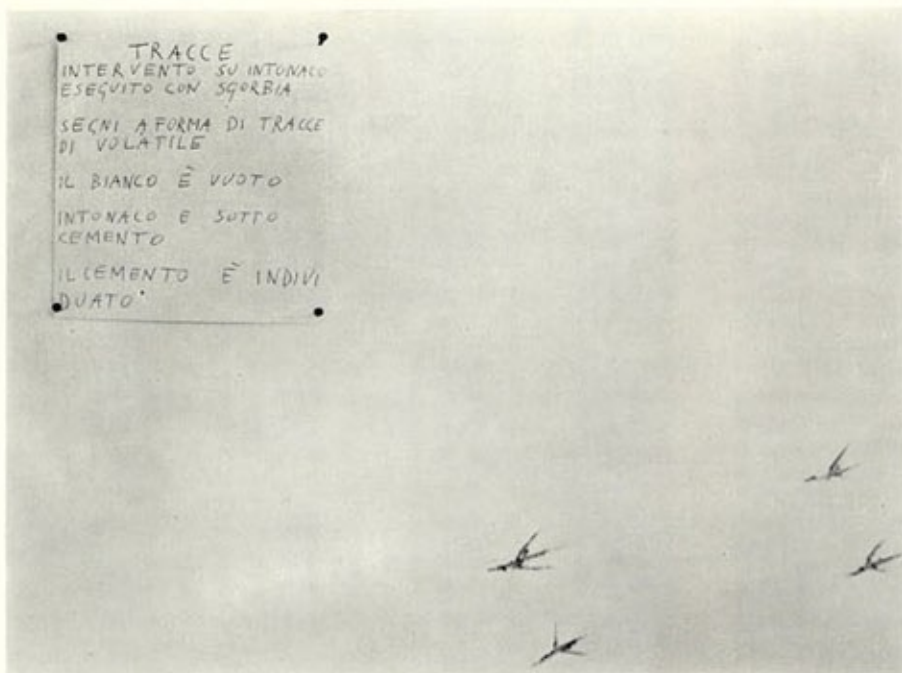 TRACCE
INTERVENTO SU INTONACO
ESEGUITO CON SGORBIA
SEGNI A FORMA DI TRACCE
DI VOLATILE
IL BIANCO È VUOTO
INTONACO E SOTTO
CEMENTO
IL CEMENTO È INDIVI
DUATO